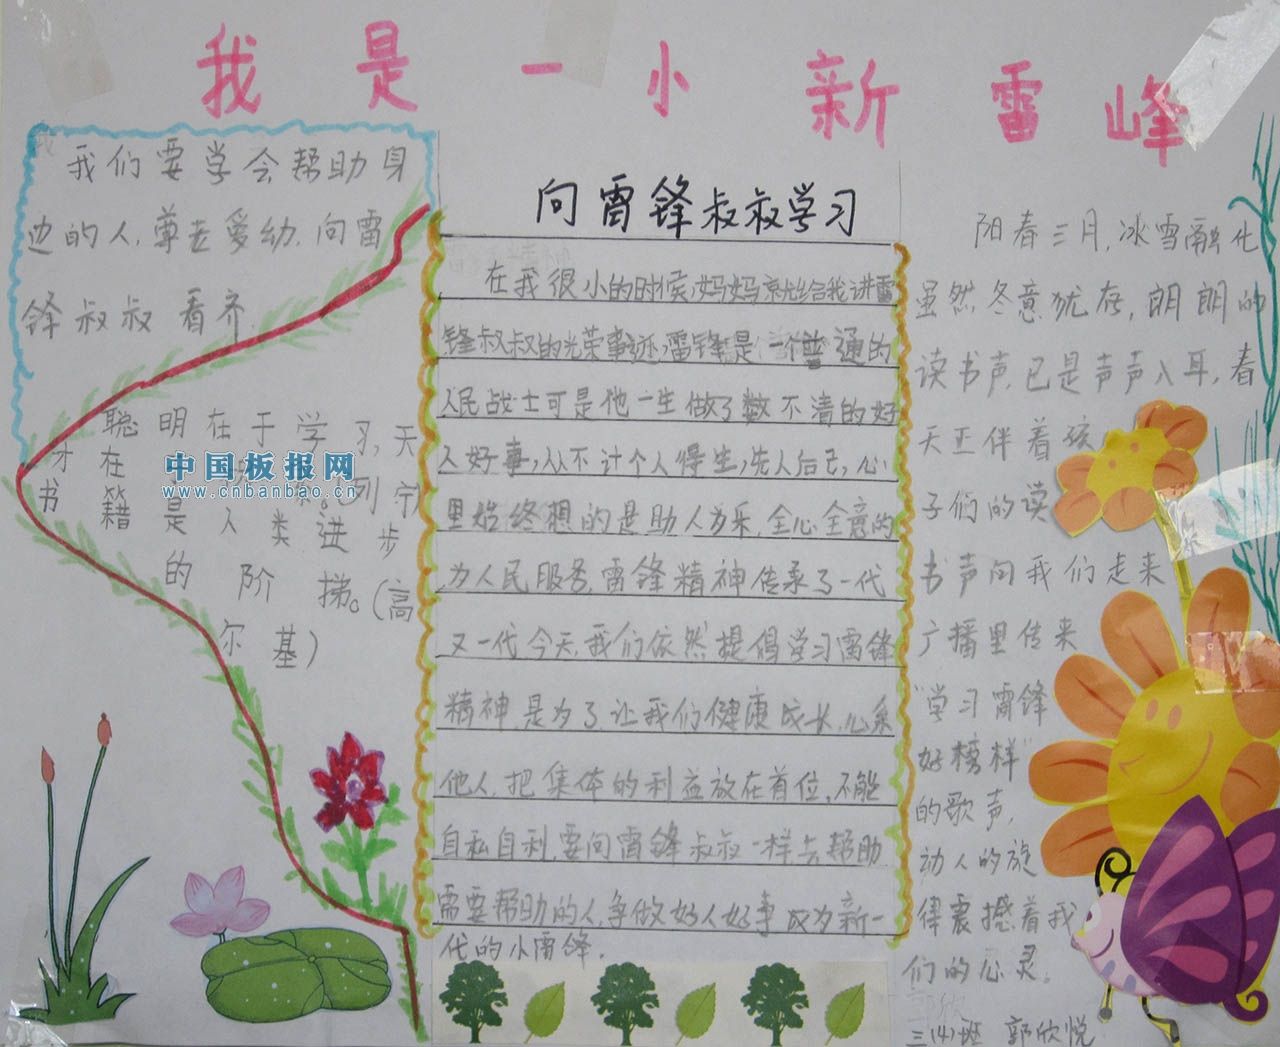 我是一小新雷峰
我们要学会帮助身
边的人,尊老爱幼,向雷
锋叔叔看齐.
聪明在于学习,天
才在
列宁
书籍是人类进步
的阶梯。(高
尔基)
中国板报网
www.cnbanbao.cn
向雷锋叔叔学习
在我很小的时候,妈妈就给我讲雷
锋叔叔的光荣事迹,雷锋是一个普通的
人民战士可是他一生做了数不清的好
人好事,从不计个人得失,先人后己,心
里始终想的是助人为乐,全心全意的
为人民服务,雷锋精神传承了一代
又一代今天,我们依然提倡学习雷锋
精神,是为了让我们健康成长,心系
他人,把集体的利益放在首位,不能
自私自利,要向雷锋叔叔一样去帮助
需要帮助的人,争做好人好事成为新一
代的小雷锋.
阳春三月,冰雪融化
虽然冬意犹存,朗朗的
读书声,已是声声入耳,春
天正伴着孩
子们的读
书声向我们走来
广播里传来
"学习雷锋
好榜样"
的歌声,
动人的旋
律震撼着我
们的心灵。
三(4)班 郭欣悦